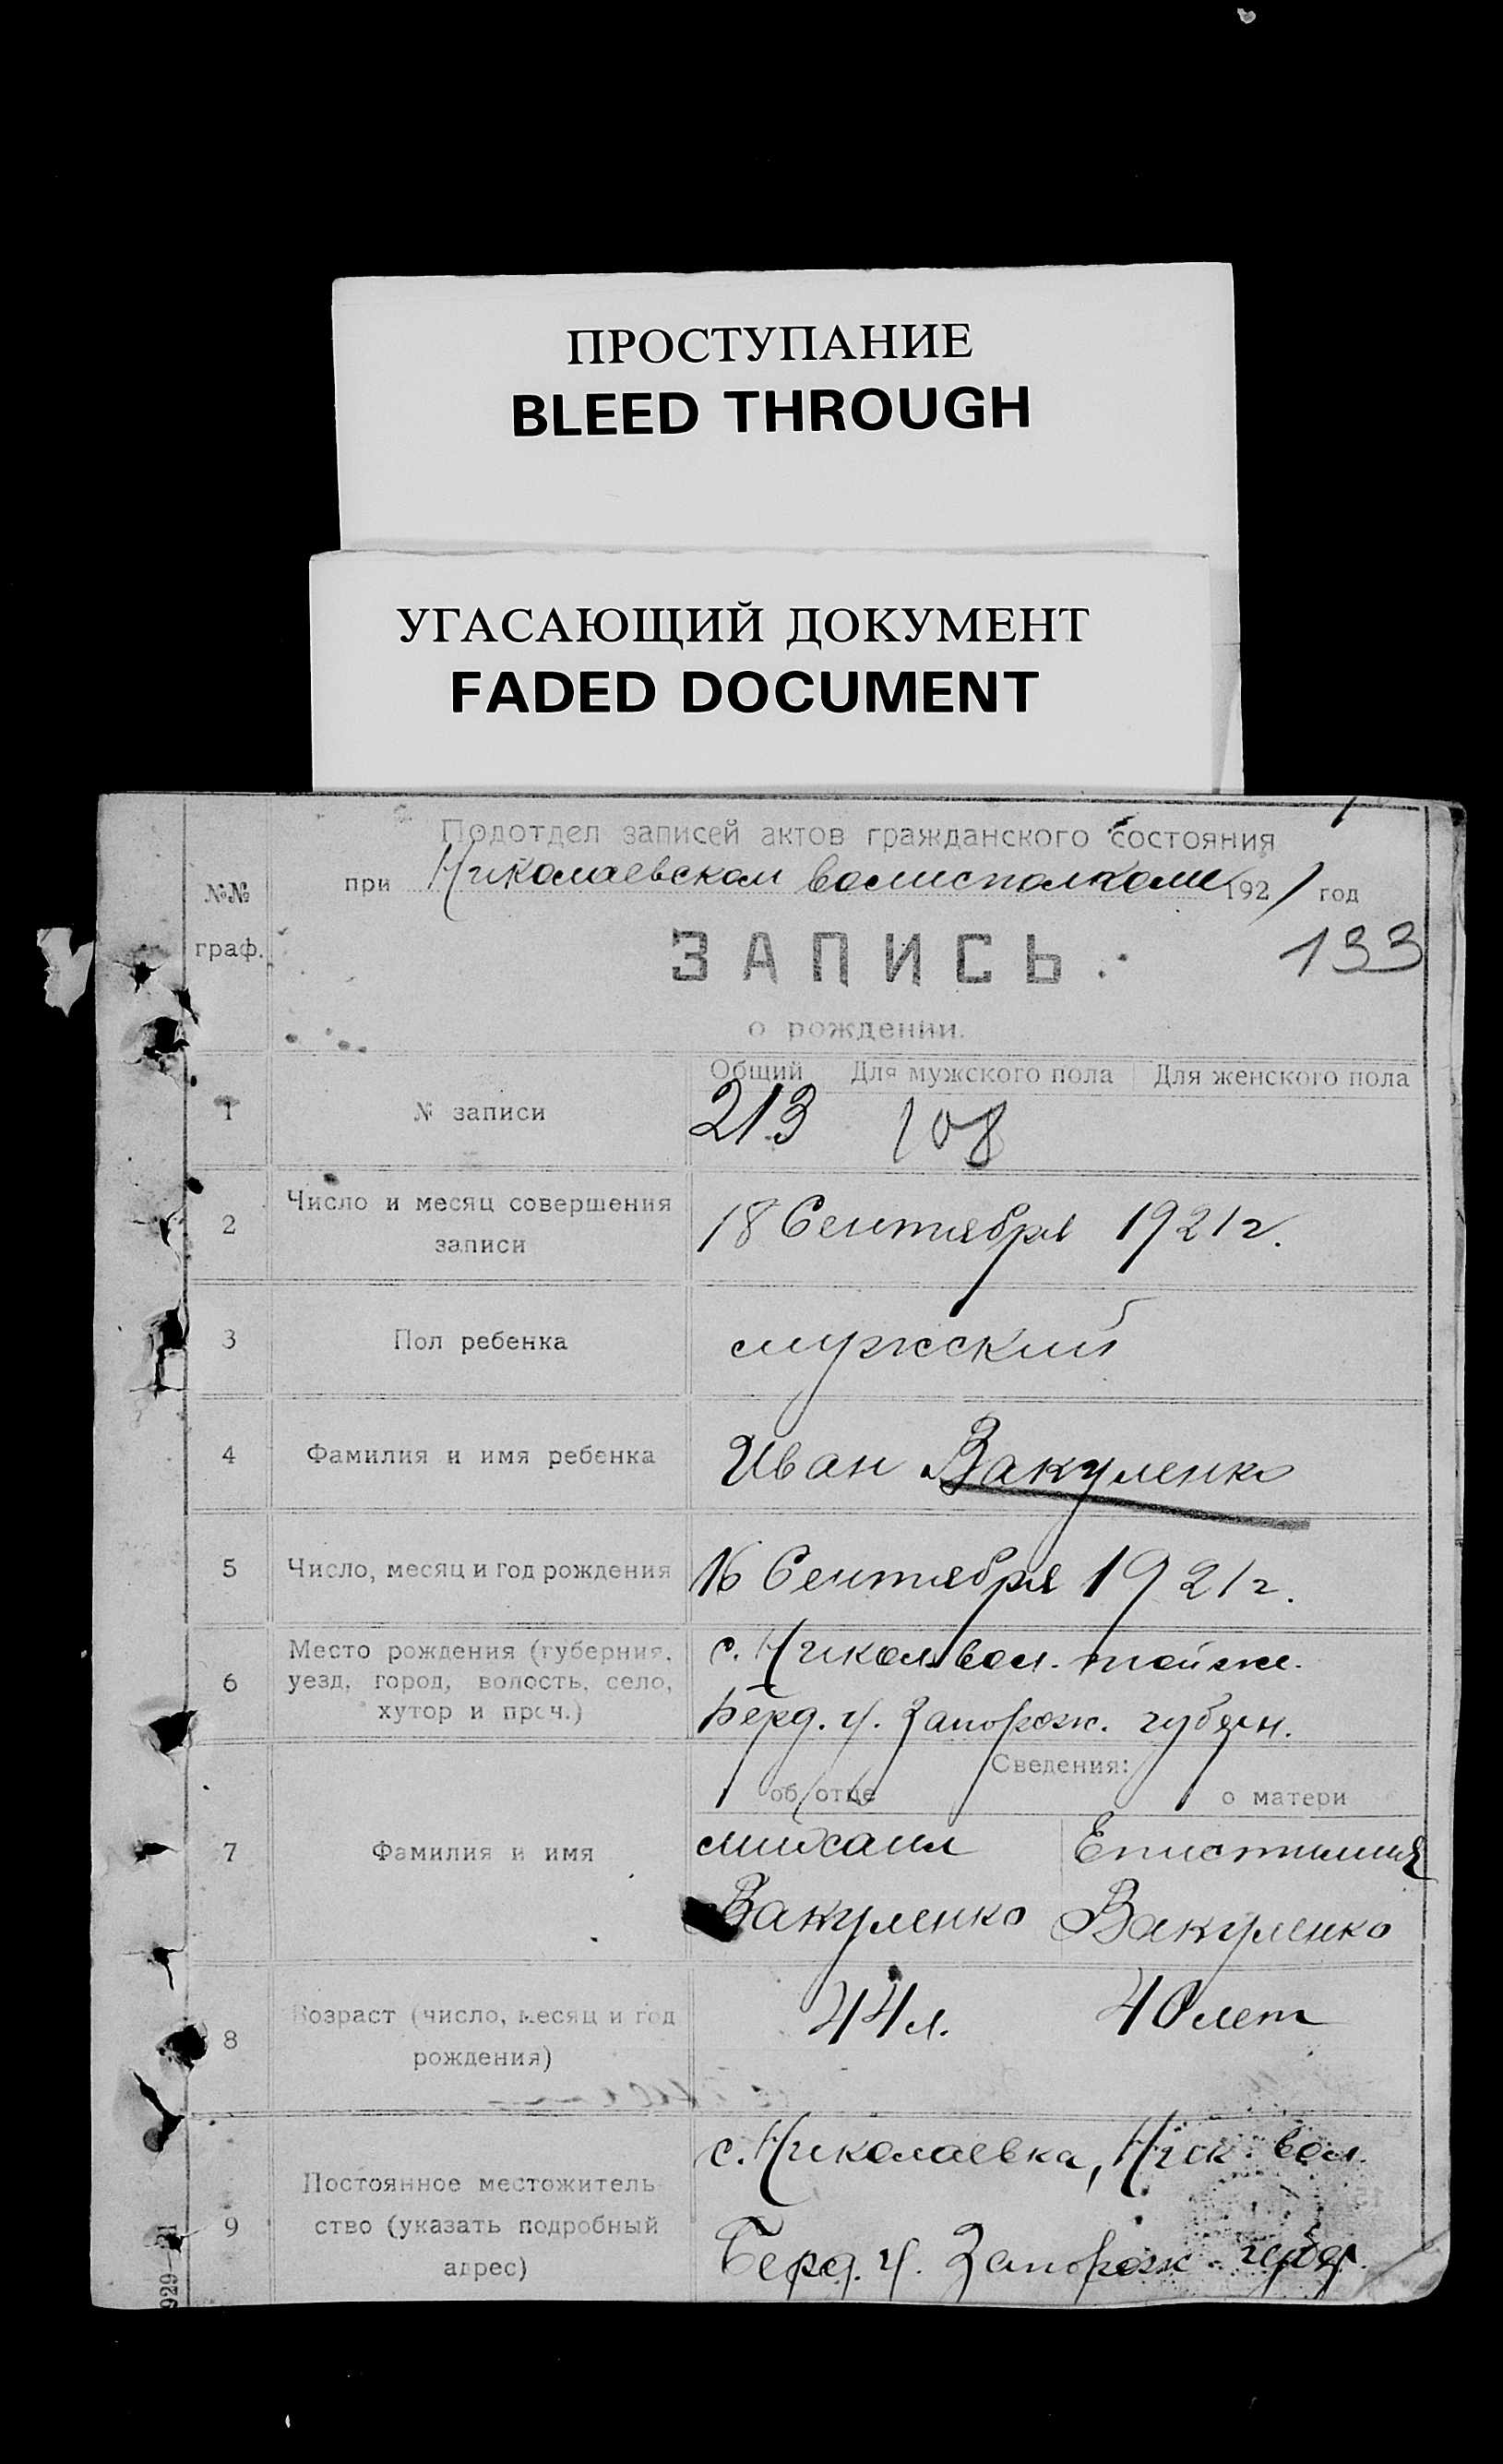 ПРОСТУПАНИЕ
BLEED THROUGH
УГАСАЮЩИЙ ДОКУМЕНТ
FADED DOCUMENT
Подотдел записей актов гражданского состояния
при Николаевском волисполкоме 1921 год
№№ граф.
ЗАПИСЬ
133
о рождении.
Общий Для мужского пола Для женского пола
1 № записи 213 108
2 Число и месяц совершения записи 18 Сентября 1921 г.
3 Пол ребенка мужский
4 Фамилия и имя ребенка Иван Вакуленко
5 Число, месяц и год рождения 16 Сентября 1921 г.
6 Место рождения (губерния, уезд, город, волость, село, хутор и проч.) с. Никол. вол.
Берд. у. Запорож. губерн.
Сведения:
об отце о матери
7 Фамилия и имя Михаил Епистимия
Вакуленко Вакуленко
8 Возраст (число, месяц и год рождения) 44 л. 40 лет
9 Постоянное местожительство (указать подробный адрес) с. Николаевка, Ник. вол.
Берд. у. Запорож. губер.